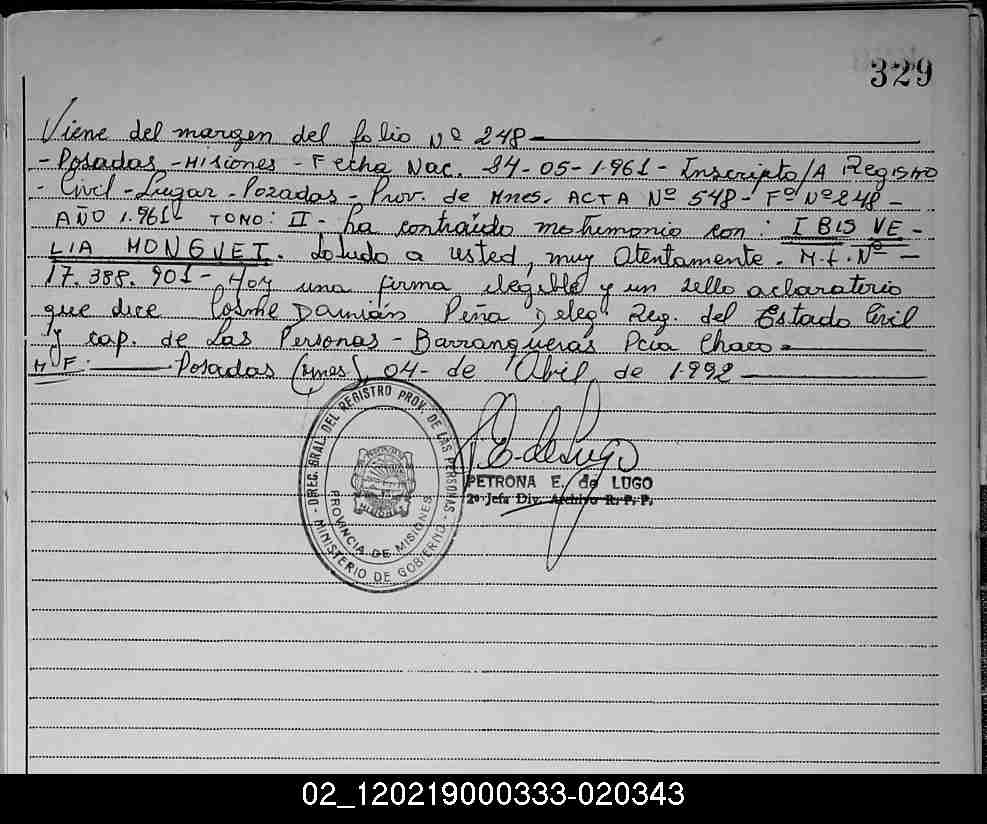 329
Viene del margen del folio Nº 248
- Posadas - Misiones - Fecha Nac. 24-05-1961 - Inscripto/A Registro
- Civil - Lugar - Pozadas - Prov. de Mnes. ACTA Nº 548 - Fº Nº 248 -
AÑO 1.961 - TOMO: II - ha contraído matrimonio con: IBIS VE-
LIA MONGUET. Saludo a usted, muy Atentamente. M.I. Nº -
17.388.901 - Hay una firma ilegible y un sello aclaratorio
que dice Cosme Damián Peña Deleg. Reg. del Estado Civil
y cap. de Las Personas - Barranqueras Pcia Chaco
M F. Posadas (Mnes), 04 - de Abril de 1.992
DIREC. GRAL. DEL REGISTRO PROV. DE LAS PERSONAS
PROVINCIA DE MISIONES
MINISTERIO DE GOBIERNO
P.E. de Lugo
PETRONA E. de LUGO
2º Jefa Div. Archivo R. P. P.
02_120219000333-020343